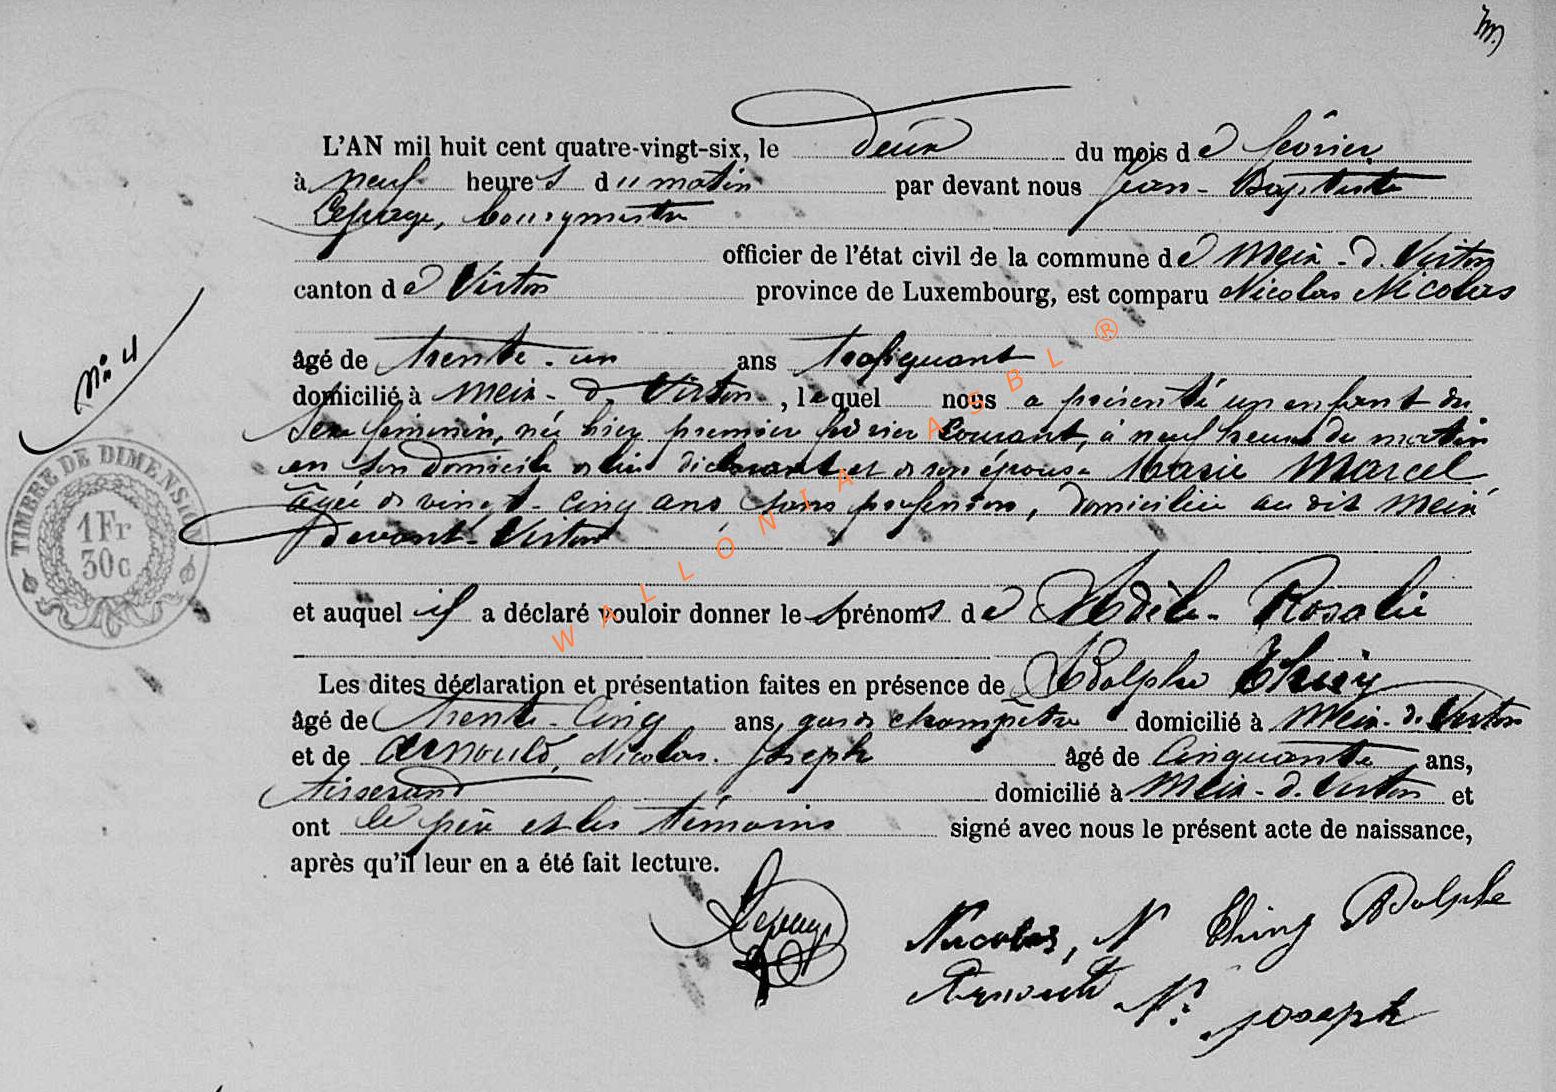 L'AN mil huit cent quatre-vingt-six, le deux du mois de février
à neuf heures du matin par devant nous Jean-Baptiste
Lepage, bourgmestre
officier de l'état civil de la commune de Meix-d. Virton
canton de Virton province de Luxembourg, est comparu Nicolas Nicolas
âgé de trente-un ans trafiquant
domicilié à Meix-d. Virton, lequel nous a présenté un enfant du
Sexe féminin, née hier premier février courant, à neuf heures du matin
en son domicile de lui déclarant et de son épouse Marie Marcel
âgée de vingt-cinq ans sans profession, domiciliée au dit Meix
devant-Virton
et auquel il a déclaré vouloir donner les prénoms de Adèle-Rosalie
Les dites déclaration et présentation faites en présence de Adolphe
âgé de trente-cinq ans, garde champêtre domicilié à Meix-d. Virton
et de Arnould, Nicolas-Joseph âgé de cinquante ans,
tisserand domicilié à Meix-d. Virton et
ont le père et les témoins signé avec nous le présent acte de naissance,
après qu'il leur en a été fait lecture.
Lepage Nicolas, N Adolphe
Arnould N. Joseph
No 4
TIMBRE DE DIMENSION
1 Fr
30c
WALLONIA ASBL ®